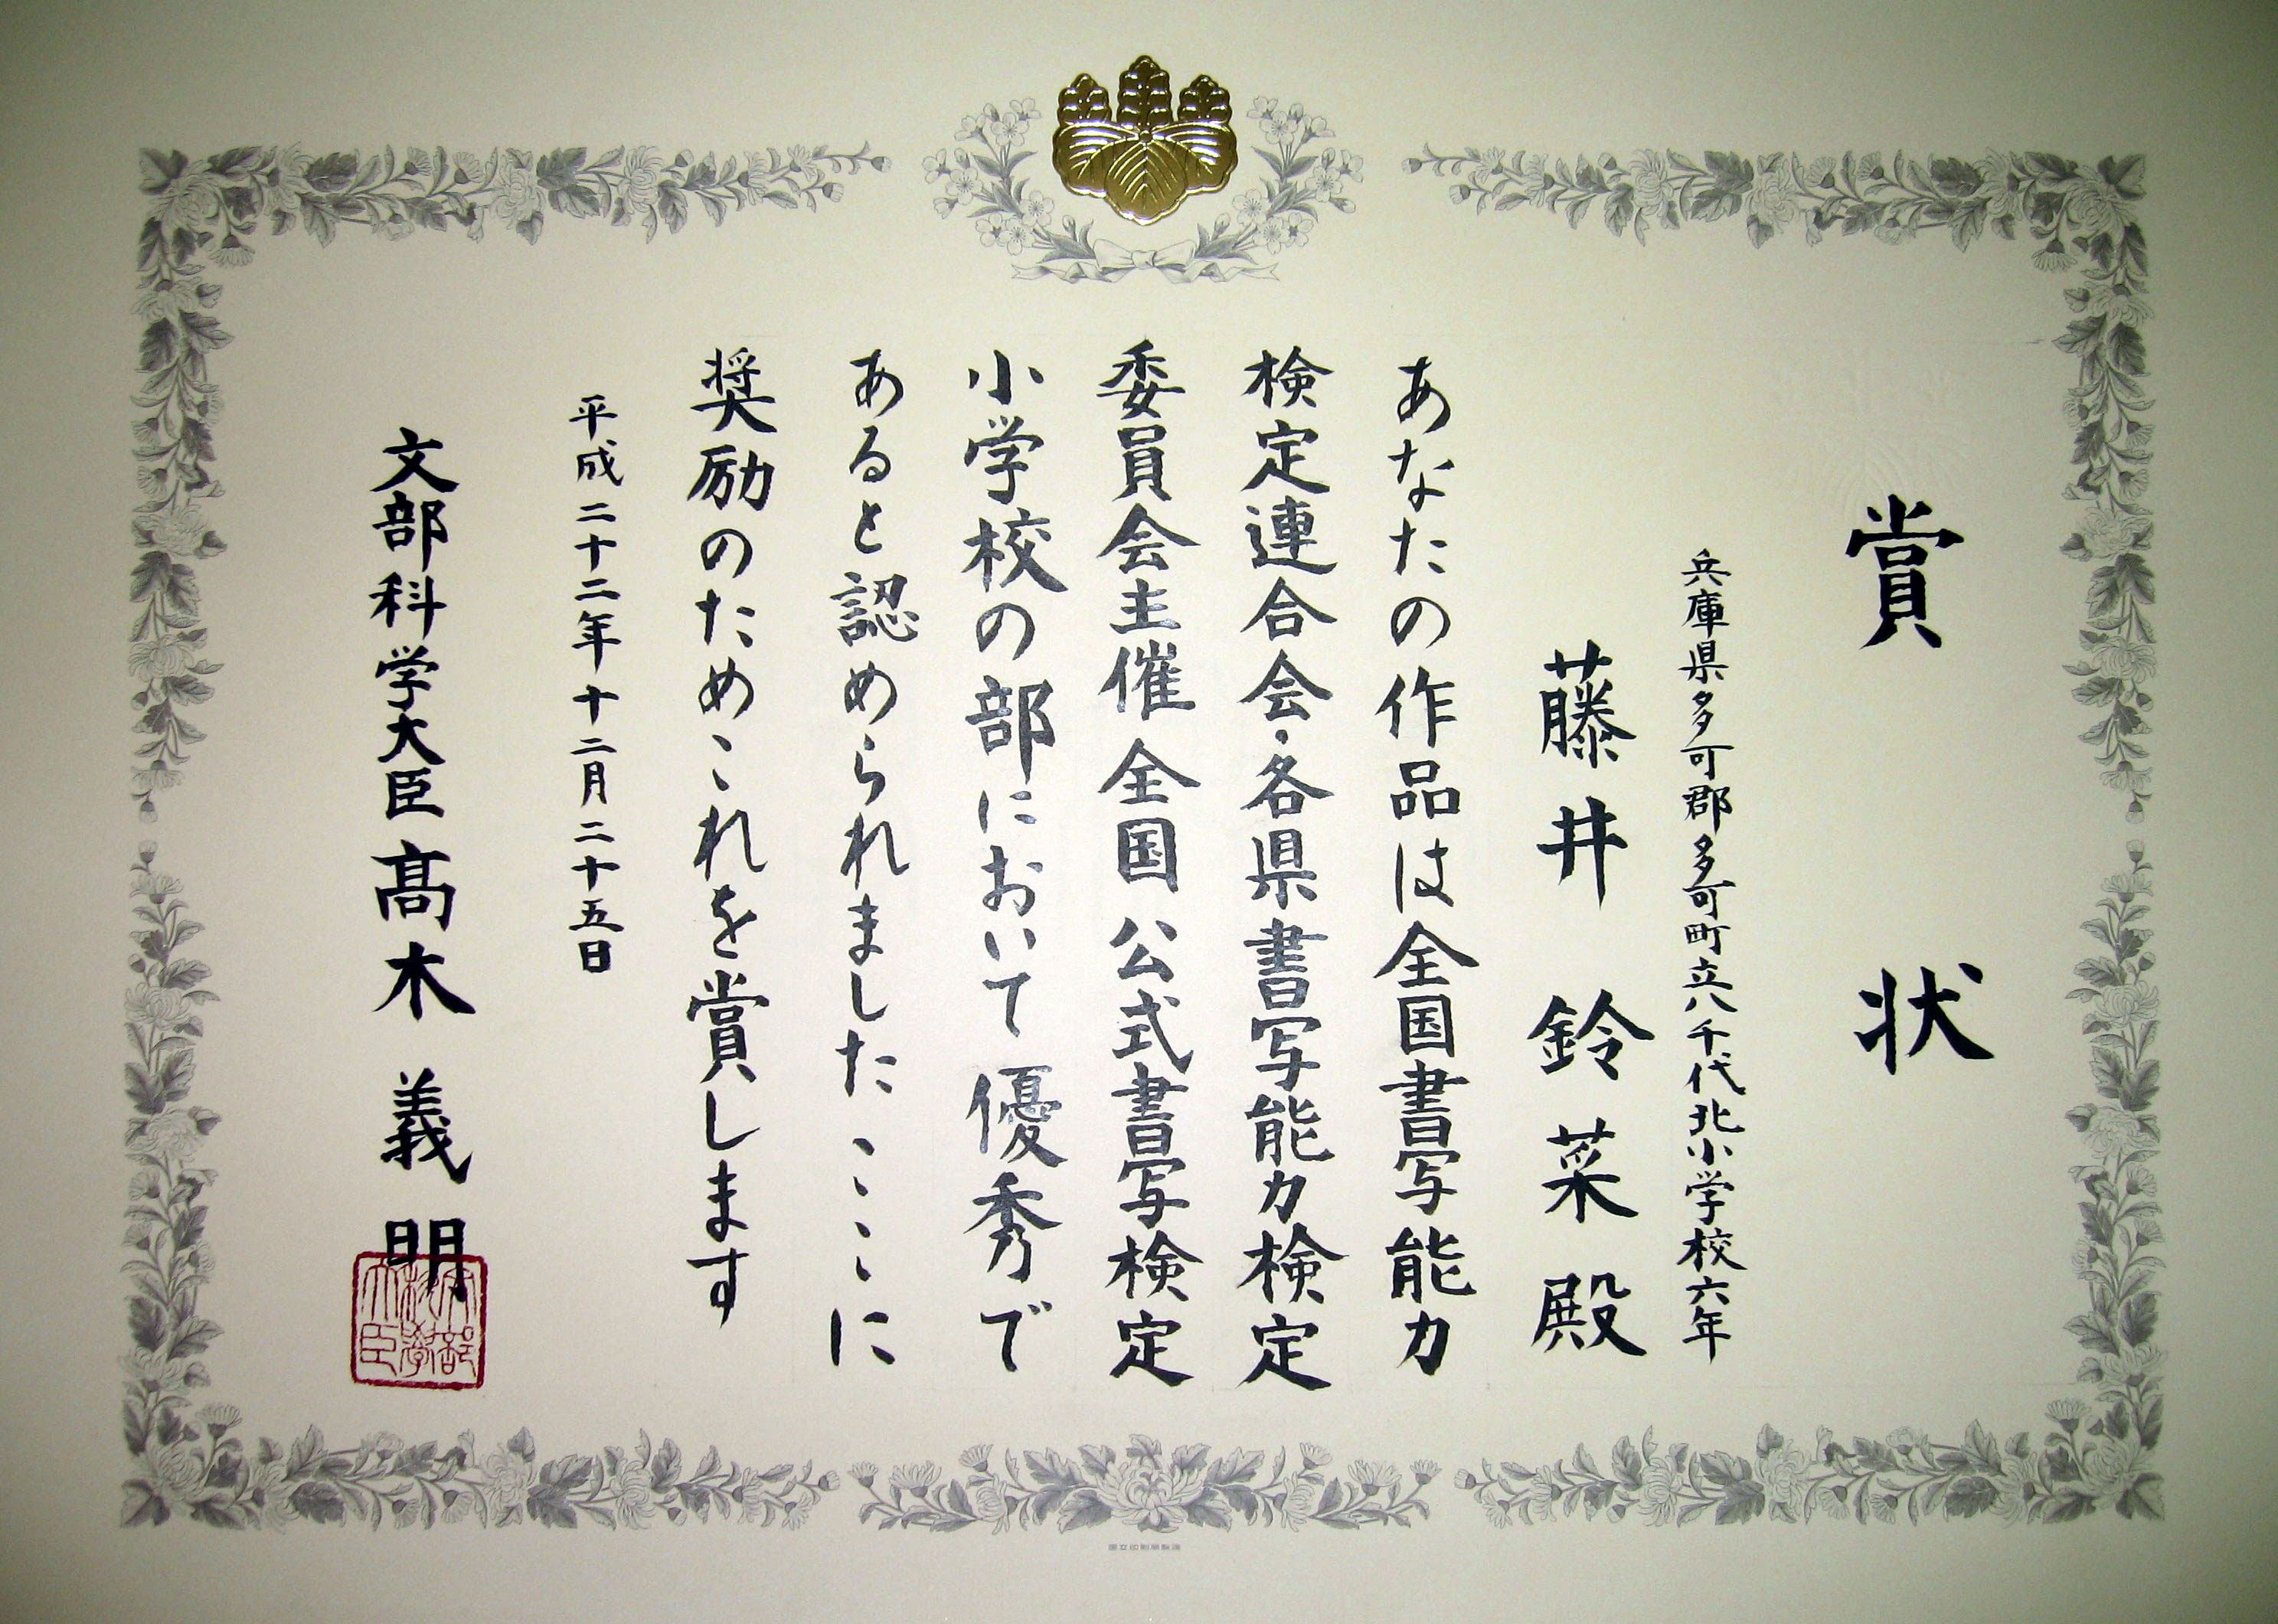 賞状
兵庫県多可郡多可町立八千代北小学校六年
藤井鈴菜殿
あなたの作品は全国書写能力
検定連合会・各県書写能力検定
委員会主催全国公式書写検定
小学校の部において優秀で
あると認められましたここに
奨励のためこれを賞します
平成二十二年十二月二十五日
文部科学大臣髙木義明
文部科学大臣
国立印刷局製造